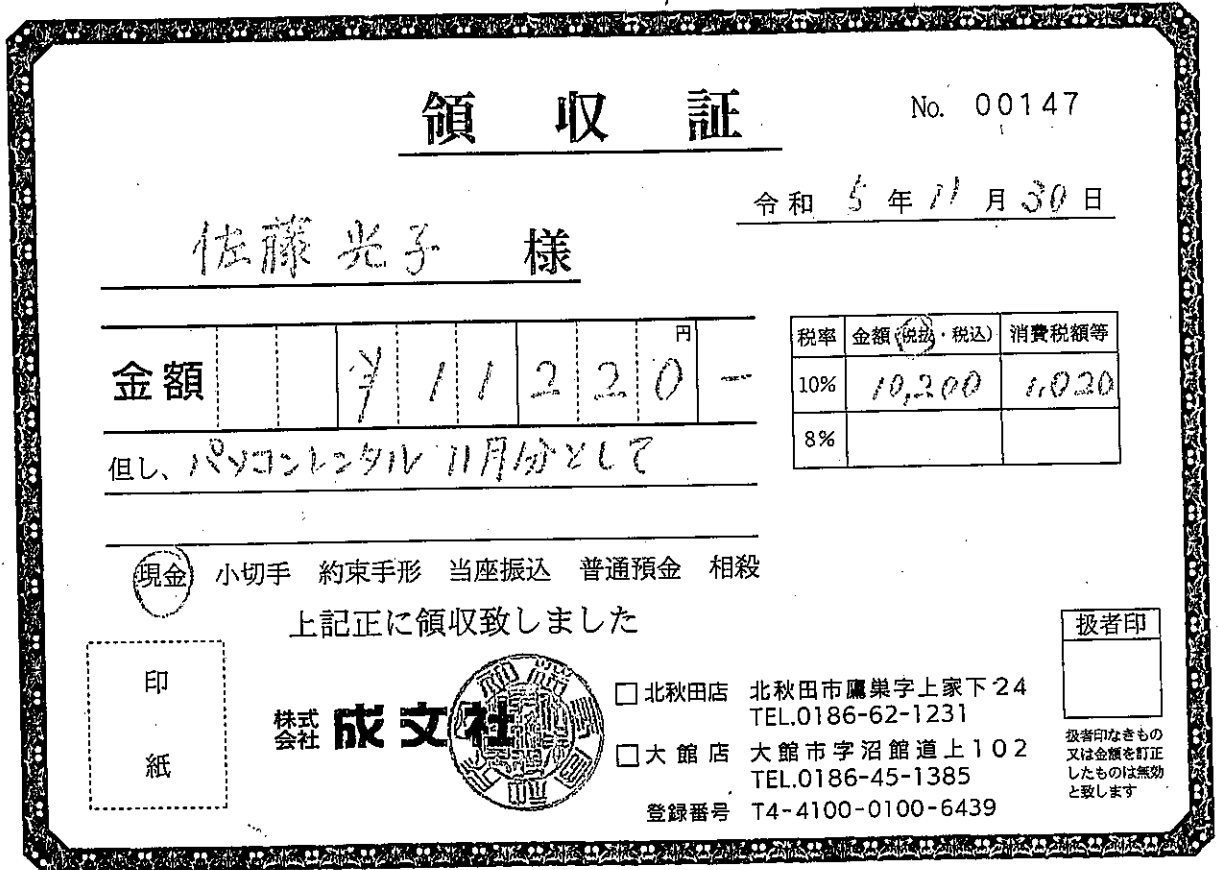 領収証
No. 00147
令和 5 年 11 月 30 日
佐藤光子 様
金額 ¥11220円ー
税率 金額(税抜・税込) 消費税額等
10% 10,200 1,020
8%
但し、パソコンレンタル 11月分として
現金 小切手 約束手形 当座振込 普通預金 相殺
上記正に領収致しました
扱者印
印紙
株式会社 成文社
□北秋田店 北秋田市鷹巣字上家下24
TEL.0186-62-1231
□大館店 大館市字沼館道上102
TEL.0186-45-1385
登録番号 T4-4100-0100-6439
扱者印なきもの
又は金額を訂正
したものは無効
と致します